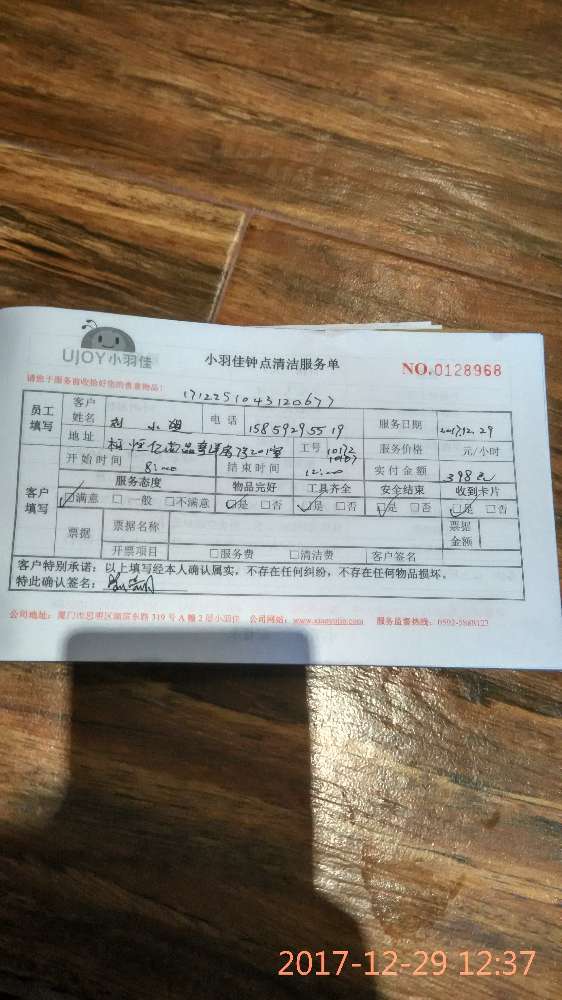 UJOY小羽佳
小羽佳钟点清洁服务单
NO.0128968
请您于服务前收拾好您的贵重物品!
1712251043120677
员工填写
客户姓名
电话 15859295519
服务日期 2017.12.29
地址
工号
服务价格 元/小时
开始时间 8:00
结束时间 12:00
实付金额 398元
客户填写
服务态度 物品完好 工具齐全 安全结束 收到卡片
☑满意 □一般 □不满意 ☑是 □否 ☑是 □否 ☑是 □否 ☑是 □否
票据
票据名称
票据金额
开票项目 □服务费 □清洁费 客户签名
客户特别承诺：以上填写经本人确认属实，不存在任何纠纷，不存在任何物品损坏。
特此确认签名：
公司地址：厦门市思明区湖滨东路319号A幢2层小羽佳 公司网站：www.xiaoyujia.com 服务监督热线：
2017-12-29 12:37